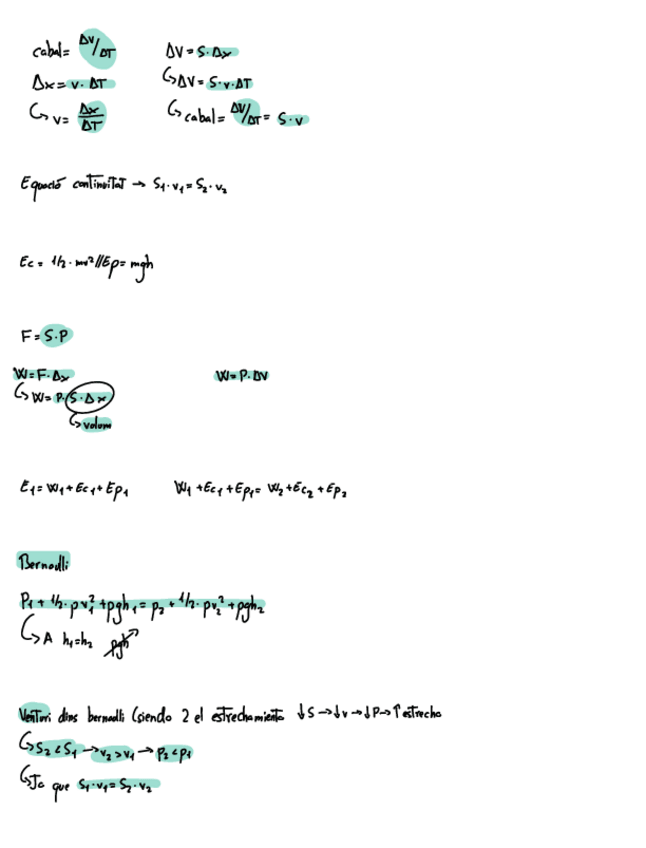 cabal = ΔV/ΔT
ΔV = S·Δx
Δx = v·ΔT
↳ ΔV = S·v·ΔT
↳ v = Δx/ΔT
↳ cabal = ΔV/ΔT = S·v
Equació continuitat → S₁·v₁ = S₂·v₂
Ec = 1/2·mv² // Ep = mgh
F = S·P
W = F·Δx
W = P·ΔV
↳ W = P·S·Δx
↳ volum
E₁ = W₁ + Ec₁ + Ep₁
W₁ + Ec₁ + Ep₁ = W₂ + Ec₂ + Ep₂
Bernoulli
P₁ + 1/2·ρv₁² + ρgh₁ = P₂ + 1/2·ρv₂² + ρgh₂
↳ A h₁=h₂ ρgh
Venturi dins bernoulli (siendo 2 el estrechamiento ↓S → ↓v → ↓P → ↑estrecho
↳ S₂ < S₁ → v₂ > v₁ → P₂ < P₁
↳ Ja que S₁·v₁ = S₂·v₂